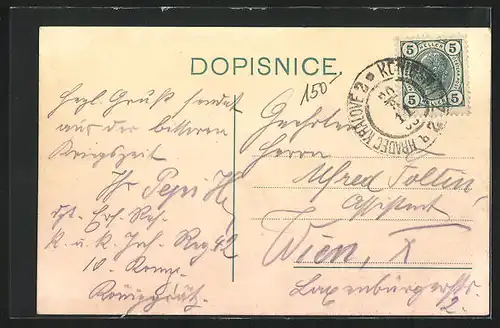 DOPISNICE.
150
5 HELLER 5
5 5
KÖNIGGRÄTZ 2 HRADEC KRÁLOVÉ 2
Herzl. Gruß sendet
aus der bitteren
Kriegszeit
Ihr Pepi H
Ers. Res.
k. u. k. Inf. Reg. 42
10. Komp.
Königgrätz.
Geehrten
Herrn
Alfred
Assistent
Wien, X
Laxenburgerstr.
2.